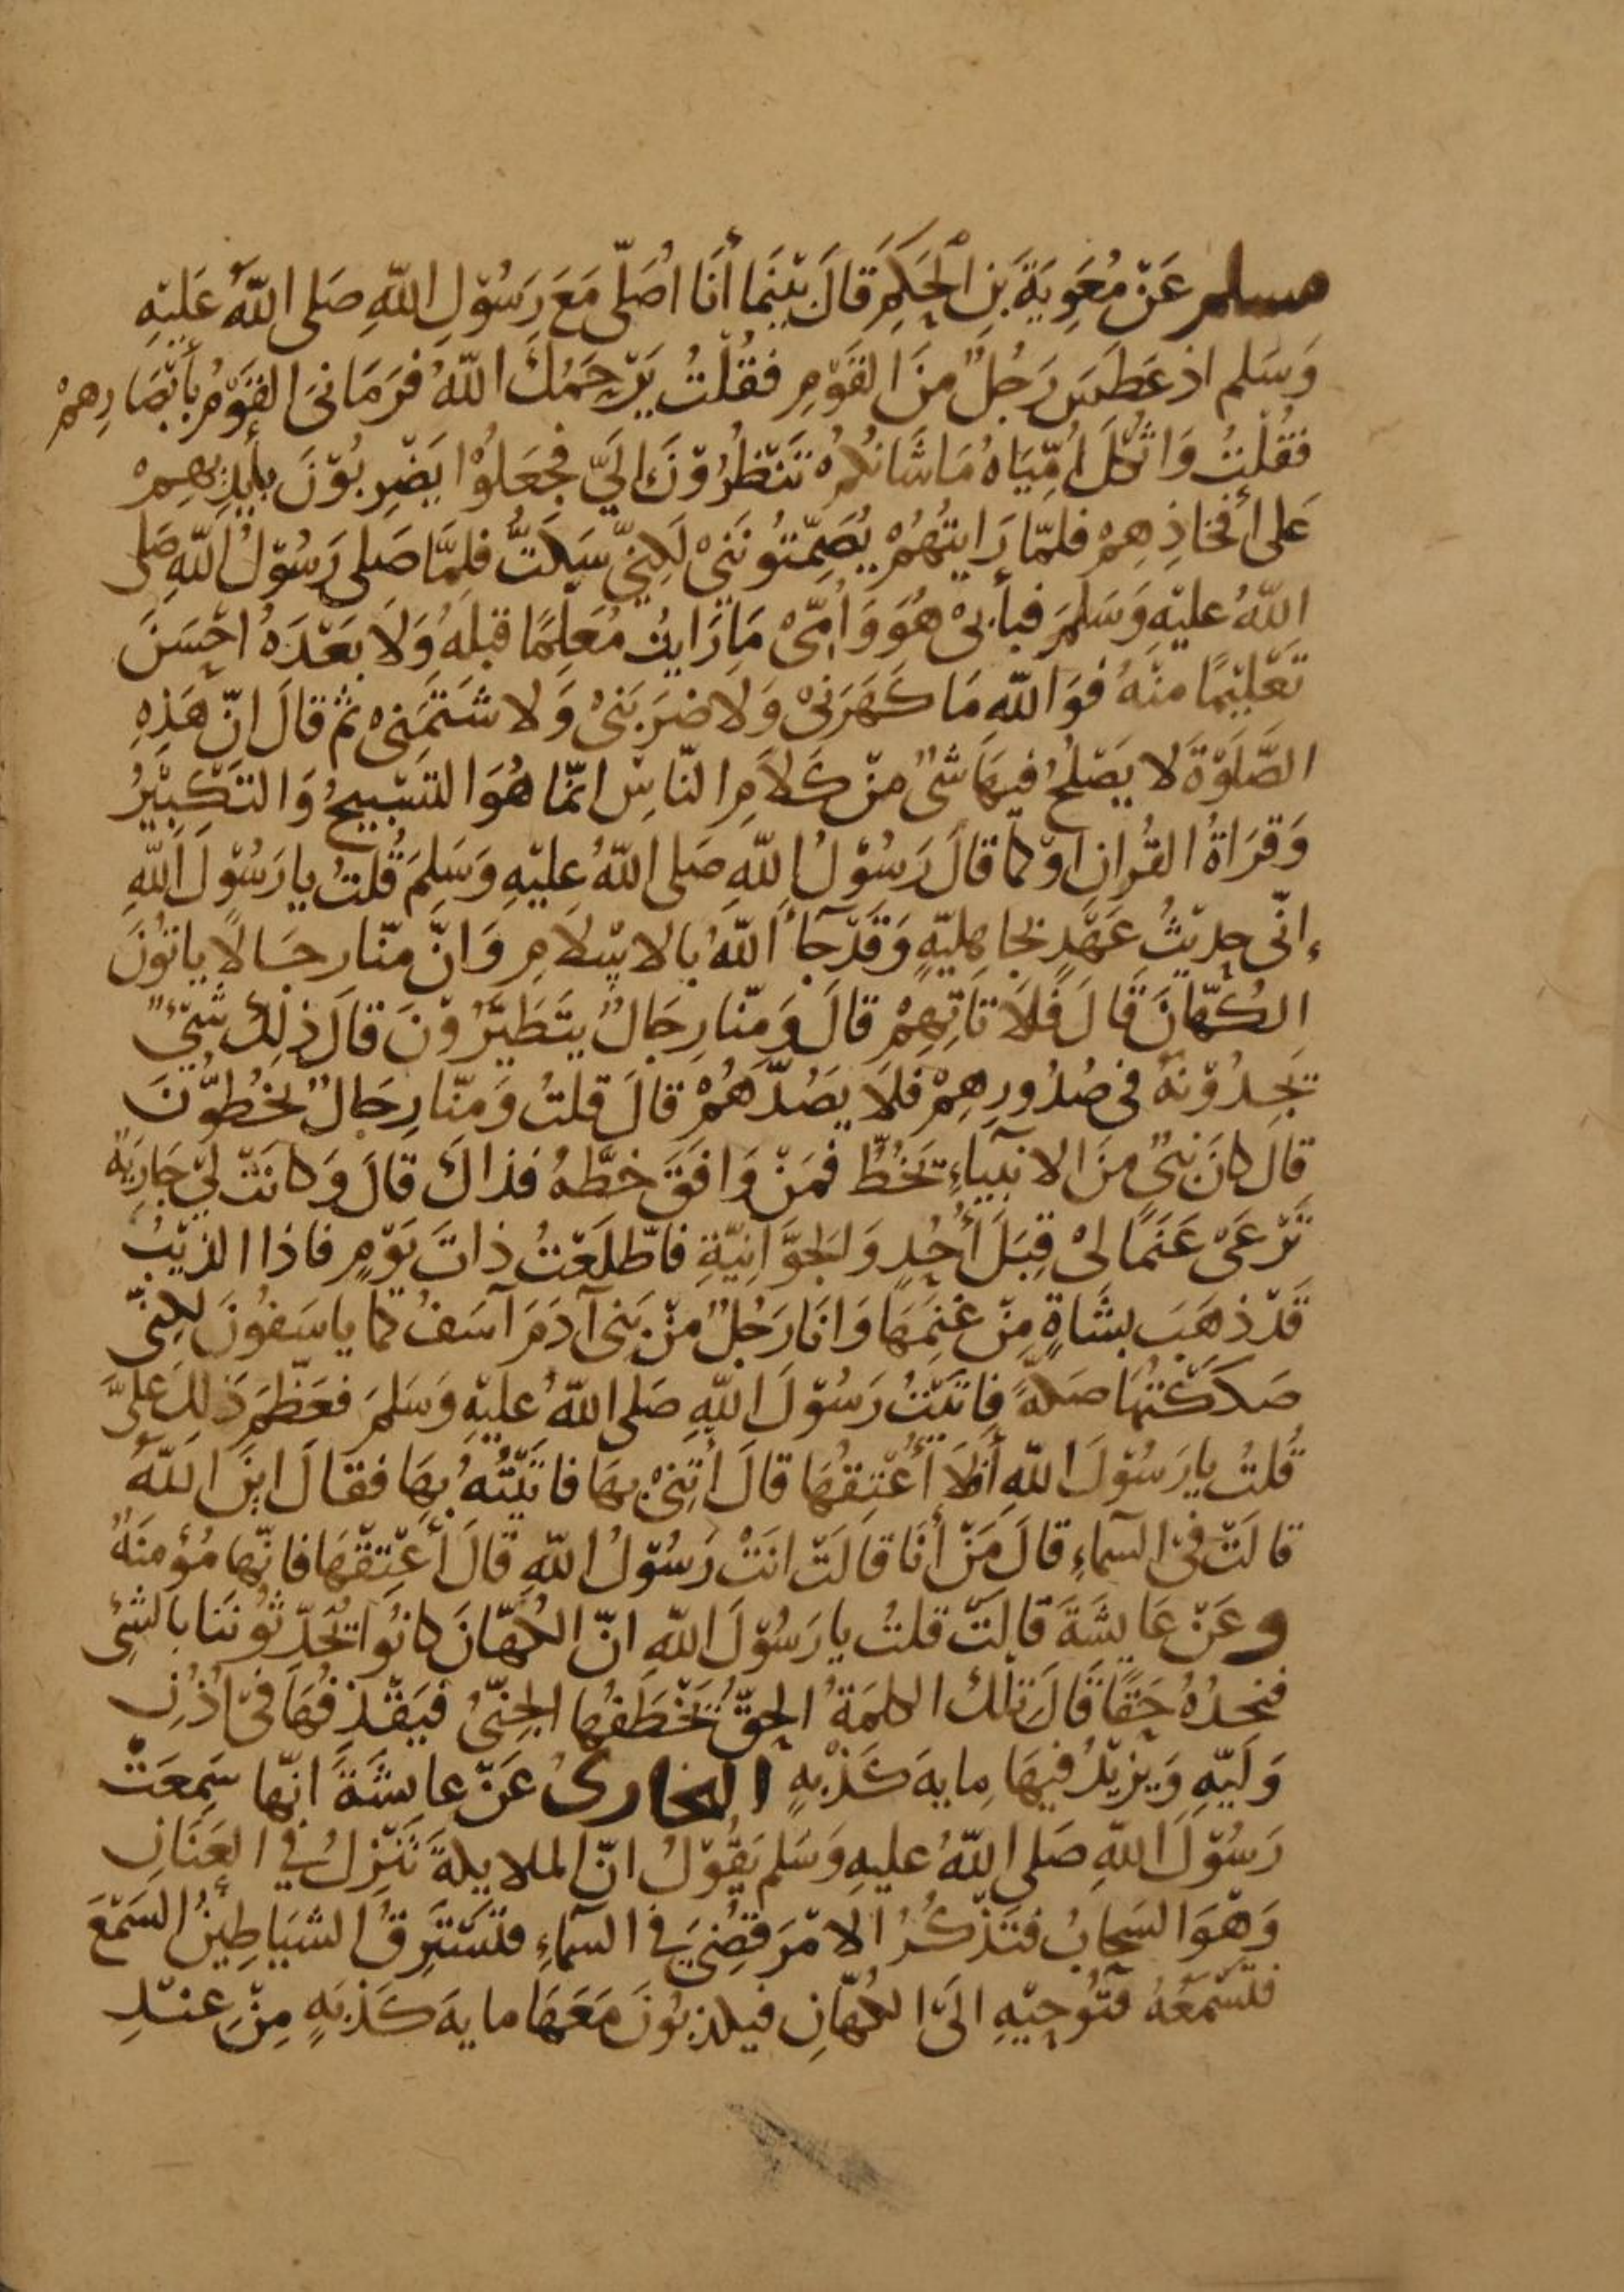 مسلم عَنْ مُعَوِيَةَ بْنِ الْحَكَمِ قَالَ بَيْنَمَا أَنَا اُصَلِّى مَعَ رَسُوْلِ اللّٰهِ صَلى اللّٰهُ عَلَيْهِ
وَسَلم اذ عَطَسَ رَجُلٌ منَ القَوْمِ فقُلْتُ يَرْحَمُكَ اللّٰهُ فَرَمَانىَ القَوْمُ بأَبْصَارِهِمْ
فقُلْتُ وَاثُكْلَ اُمِّيَاهُ مَا شَانُكمْ تَنْظُرُوْنَ الَىَّ فجَعَلوُا يَضْرِبُوْنَ بأَيْدِيْهِمْ
عَلى أفخاذِهِمْ فلمّا رَايتُهُمْ يُصَمّتُونَنِىْ لَكِنِّى سَكَتُّ فلمَّا صَلى رَسُوْلُ اللّٰهِ صَلى
اللّٰهُ عليْهِ وَسَلمَ فبأبىْ هُوَ وَأُمِّىْ مَا رَايتُ مُعَلمًا قبلهُ وَلَا بَعْدَهُ احْسَنَ
تَعْليْمًا منْهُ فوَ اللّٰه مَا كَهَرَنىْ وَلَا ضَرَبَنىْ وَلا شَتَمَنىْ ثم قالَ انّ هَذِهِ
الصَّلَوٰةَ لا يَصْلحُ فيهَا شىْ منْ كَلَامِ النّاسِ انّما هُوَ التسْبِيحُ وَالتكْبِيْرُ
وَقرَاةُ القُرانِ اَوْ كما قالَ رَسُوْلُ اللّٰهِ صَلى اللّٰهُ عليْهِ وَسَلمَ قُلتُ يا رَسُوْلَ اللّٰهِ
إنّى حدِيْثُ عَهْدٍ بجاهليّةٍ وَقَدْ جآأَ اللّٰهُ بالاسْلامِ وَانّ منّا رجَالًا ياتوُنَ
الكُهّانَ قَالَ فَلَا تَاتهِمْ قالَ وَمنّا رِجَالٌ يتَطَيّرُوْنَ قالَ ذٰلِكَ شَىْءٌ
يَجِدُوْنَهُ فى صُدُورِهِمْ فلَا يصُدَّهُمْ قالَ قلتُ وَمنّا رِجَالٌ يخُطوُّنَ
قالَ كانَ نبىٌ منَ الانبيآءِ يَخُطُّ فمَنْ وَافَقَ خطَّهُ فذاكَ قالَ وَكانَتْ لىْ جَارِيَةٌ
تَرْعَىْ غَنَمًا لىْ قِبَلَ أُحُدٍ وَالجوَّانِيّةِ فاطّلَعْتُ ذاتَ يَوْمٍ فاذا الذيْبُ
قَدْ ذهَبَ بشَاةٍ مِنْ غَنمِهَا وَانَا رَجُلٌ منْ بَنى آدَمَ آسَفُ كما ياسَفُونَ لكِنّى
صَكَكْتهَا صَكّةً فاتَيْتُ رَسُوْلَ اللّٰهِ صَلى اللّٰهُ عليْهِ وَسَلمَ فعَظَّمَ ذَلِكَ عَلىَّ
قُلتُ يا رَسُوْلَ اللّٰهِ أَفلَا أُعْتِقُهَا قالَ ائتِنىْ بهَا فاتَيْتُهُ بهَا فقالَ ايْنَ اللّٰهُ
قالَتْ فىْ السمآءِ قالَ مَنْ أَنَا قالَتْ انَتْ رَسُوْلُ اللّٰهِ قالَ أَعْتِقْهَا فانّهَا مُؤمِنَةٌ
وعَنْ عَايشَةَ قَالَتْ قلتُ يا رَسُوْلَ اللّٰهِ انّ الكُهّانَ كانُوا يُحَدّثوُنَنا بالشئ
فنجدُهُ حَقًا قَالَ تلكَ الكلمَةُ الحقُّ يَخْطَفُهَا الجنّىُ فيَقْذفُهَا فىْ اُذُنِ
وَليّهِ وَيَزِيْدُ فيْهَا مايةَ كَذْبةٍ البخارى عَنْ عايشَةَ انّهَا سَمعَتْ
رَسُوْلَ اللّٰهِ صَلى اللّٰهُ عليهِ وَسَلم يَقُوْلُ انّ الملايكةَ تَنْزلُ في العَنَانِ
وَهْوَ السَحابُ فتَذْكُرُ الامْرَ قضِىَ في السمآءِ فتَسْتَرِقُ الشيَاطِيْنُ السَمْعَ
فتَسْمَعُهُ فتُوْحِيْهِ الىَ الكُهّانِ فيكذبُونَ مَعَهَا مايةَ كَذْبَةٍ مِنْ عِنْدِ